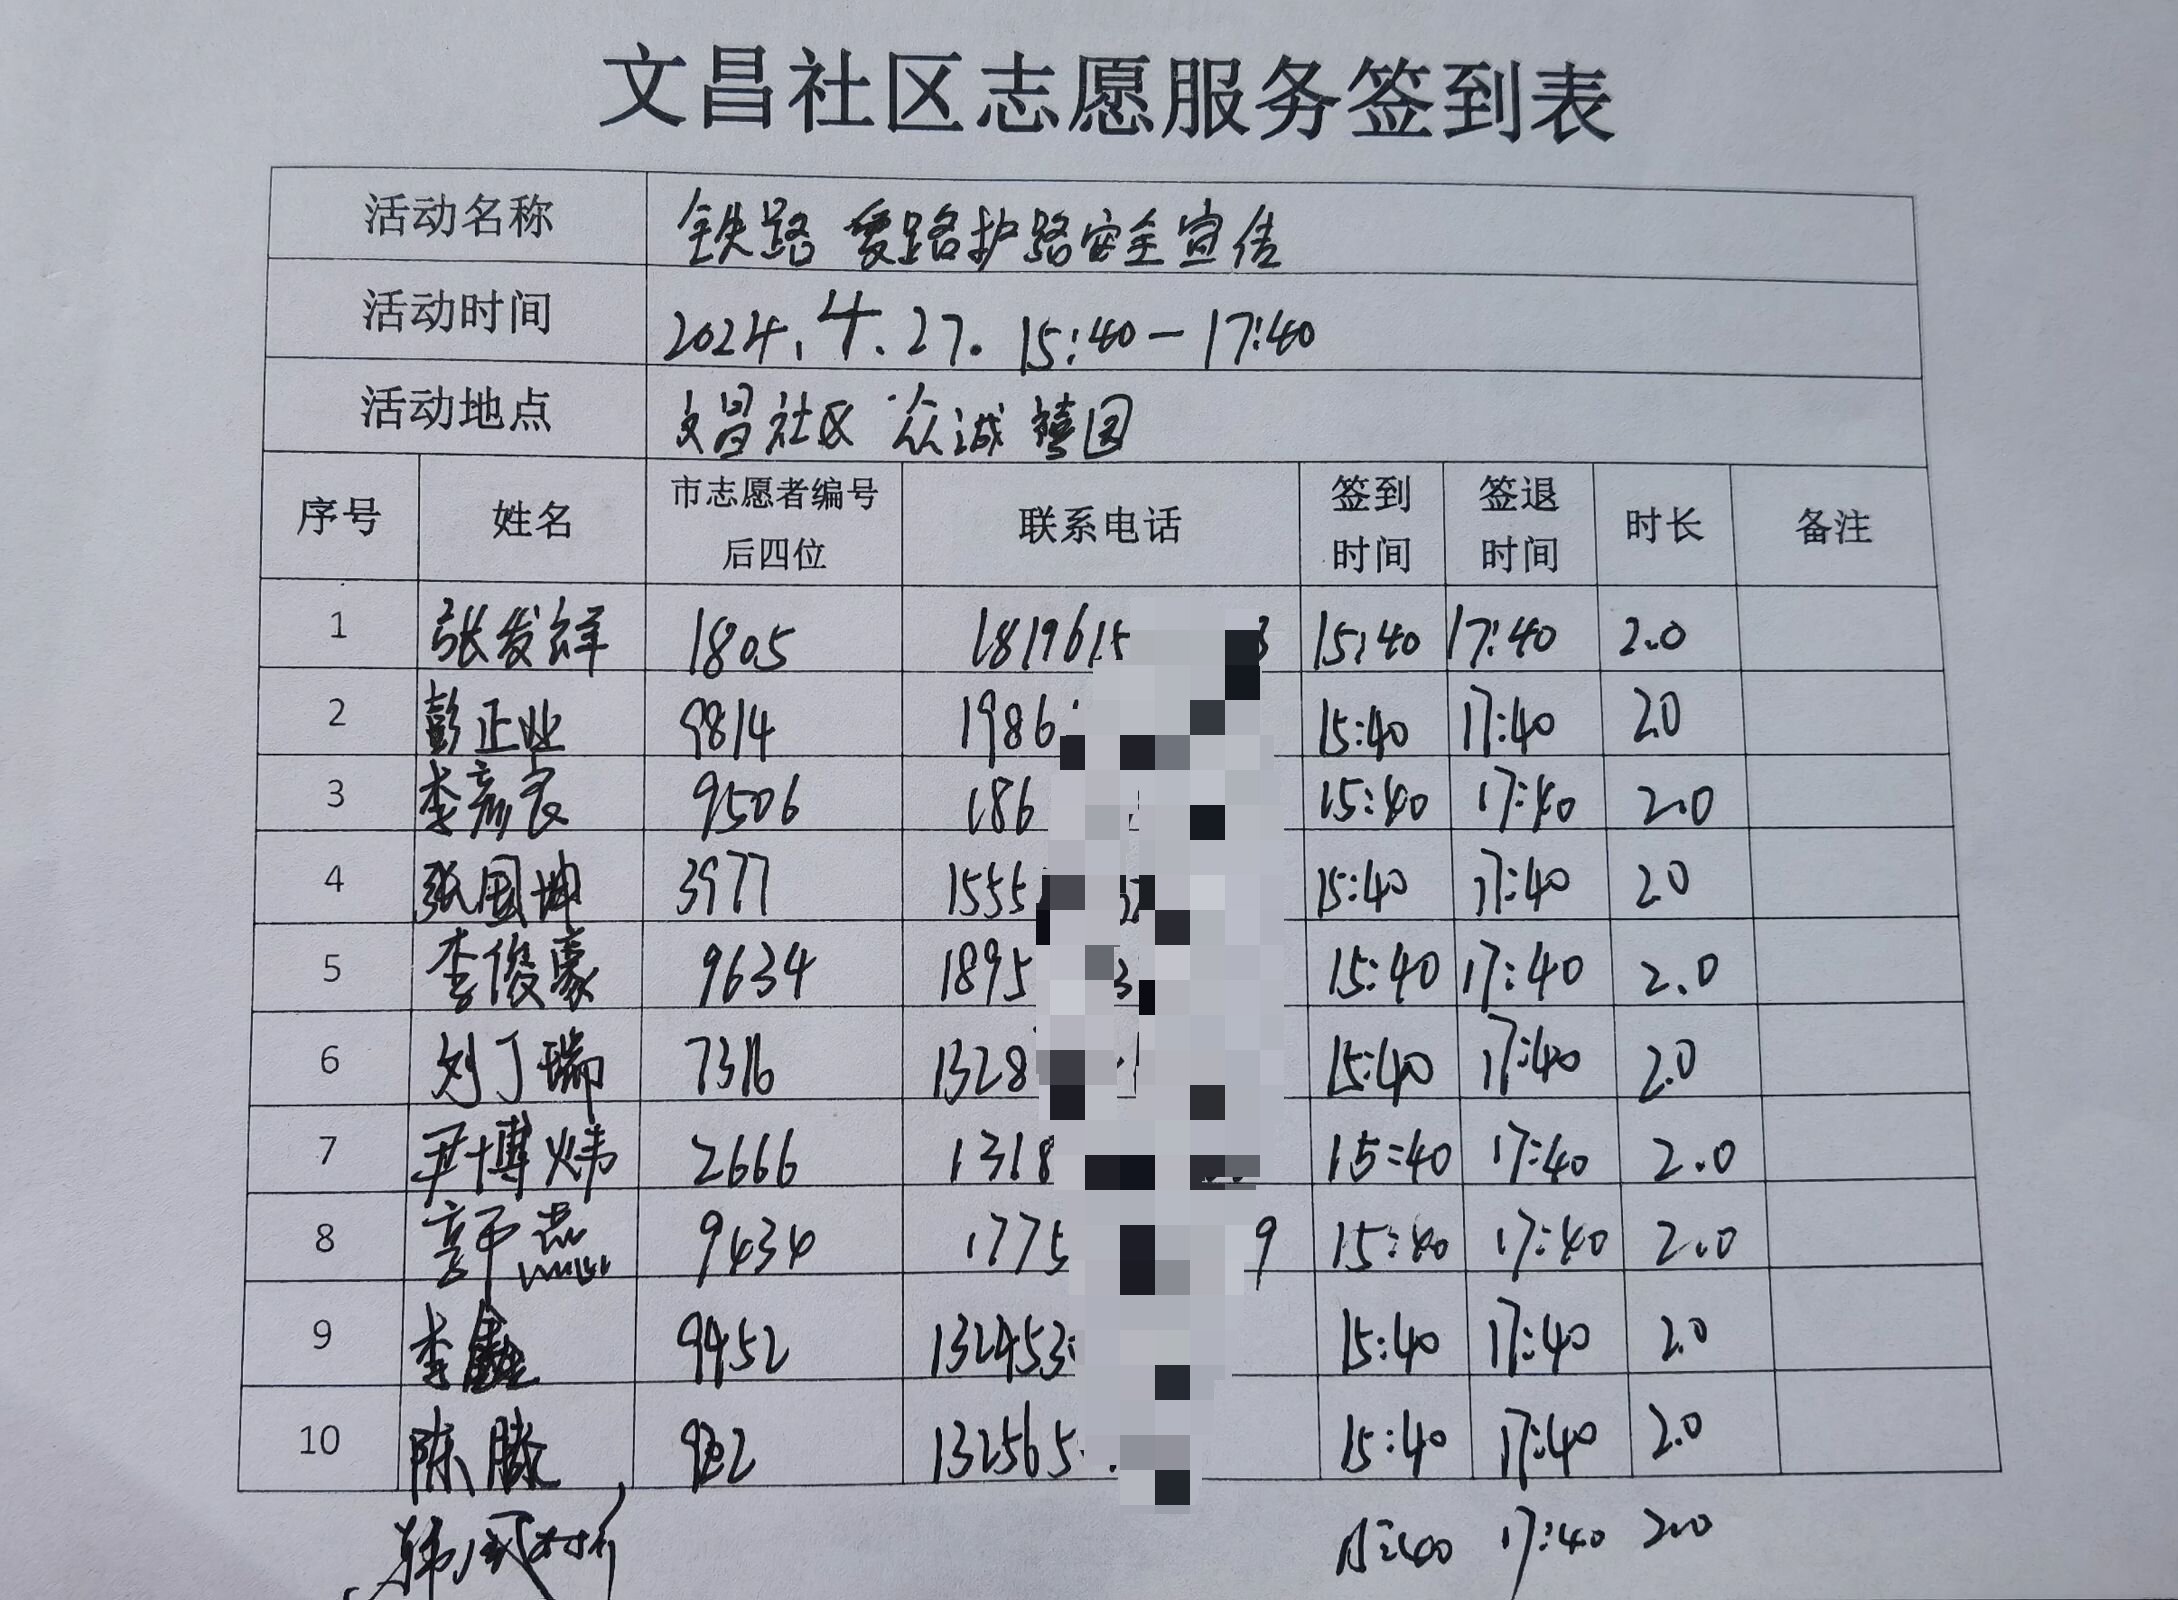 文昌社区志愿服务签到表
活动名称 铁路 爱路护路安全宣传
活动时间 2024.4.27. 15:40-17:40
活动地点 文昌社区 众诚 禧园
序号 姓名 市志愿者编号后四位 联系电话 签到时间 签退时间 时长 备注
1 张发祥 1805 1819615 3 15:40 17:40 2.0
2 彭正业 9814 1986 15:40 17:40 2.0
3 李彦良 9506 186 15:40 17:40 2.0
4 张国坤 3977 1555 15:40 17:40 2.0
5 李俊豪 9634 1895 3 15:40 17:40 2.0
6 刘丁瑞 7316 1328 15:40 17:40 2.0
7 尹博炜 2666 1318 15:40 17:40 2.0
8 9434 1775 9 15:40 17:40 2.0
9 李 9452 132453 15:40 17:40 2.0
10 陈 132565 15:40 17:40 2.0
韩 15:40 17:40 2.0